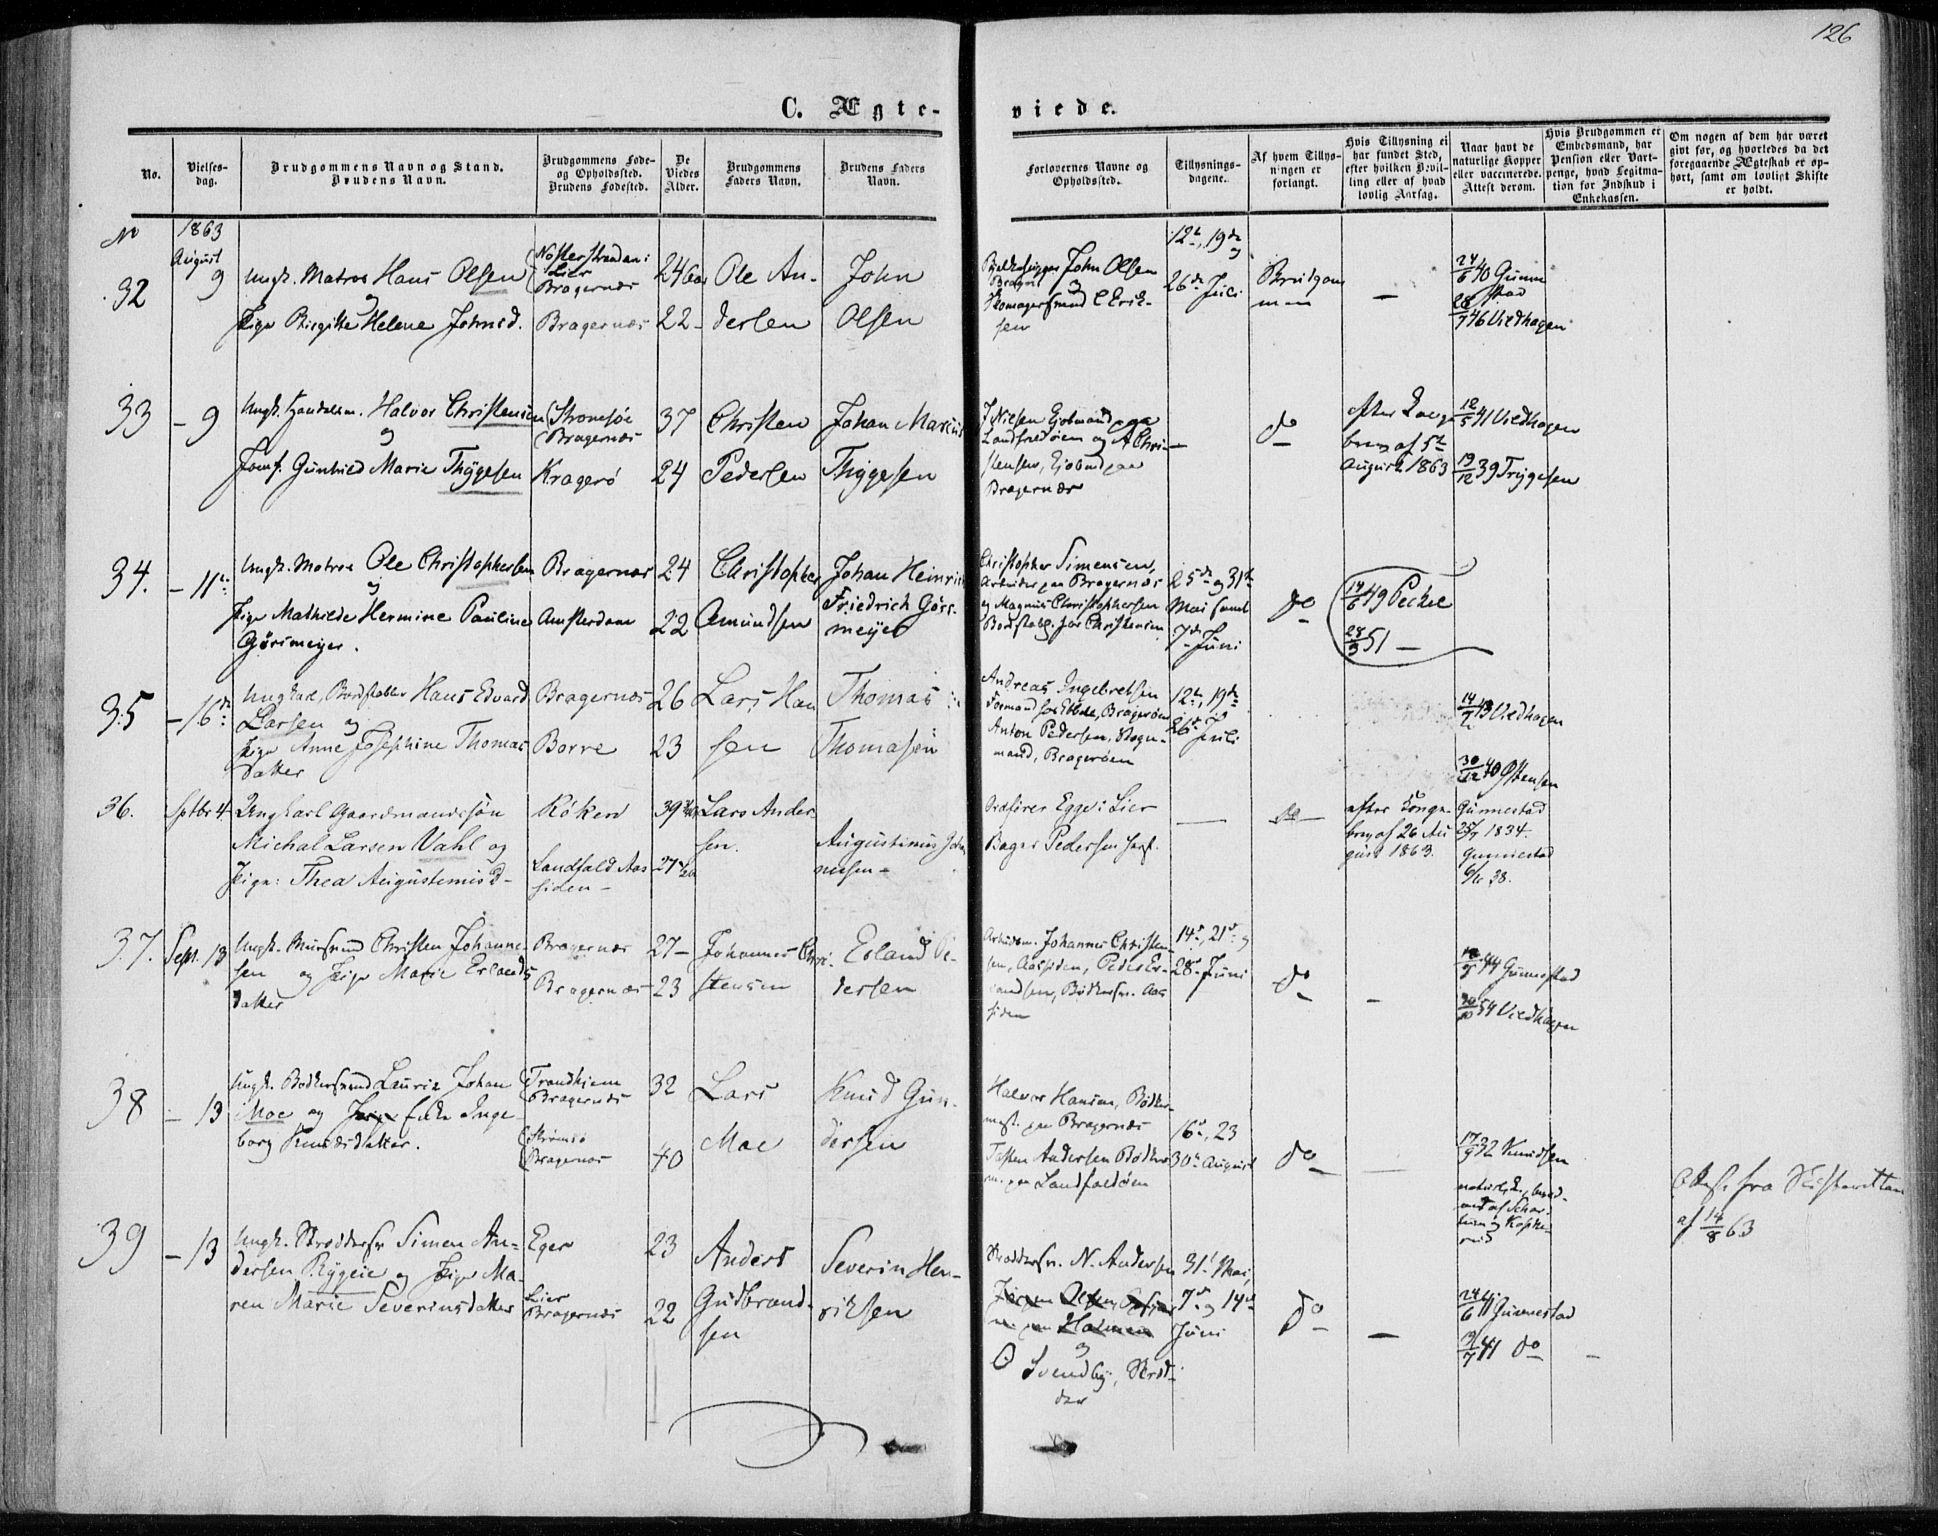 126
C. Ægte-
viede.
No.
Vielses-
dag.
Brudgommens Navn og Stand.
Brudens Navn.
Brudgommens Føde-
og Opholdssted.
Brudens Fødested.
De
Viedes
Alder.
Brudgommens
Faders Navn.
Brudens Faders
Navn.
Forlovernes Navne og
Opholdssted.
Tillysnings-
dagene.
Af hvem Tillys-
ningen er
forlangt.
Hvis Tillysning ei
har fundet Sted,
efter hvilken Bevil-
ling eller af hvad
lovlig Aarsag.
Naar havt de
naturlige Kopper
eller vaccinerede.
Attest derom.
Hvis Brudgommen er
Embedsmand, har
Pension eller Vart-
penge, hvad Legitima-
tion for Indskud i
Enkekassen.
Om nogen af dem har været
gift før, og hvorledes da det
foregaaende Ægteskab er op-
hørt, samt om lovligt Skifte
er holdt.
No 1863
August
32 9
Ungk. Matros Hans Olsen
og
Pige Birgitte Helene Johnsd.
Nøsterstranden i
Lier
Bragernæs
Bragernæs
24 Aar
22 -
Ole An-
dersen
John
Olsen
John Olsen
Bragernæs og
Skomagersvend C Erik-
sen
12te, 19de
og
26de Juli
Brudgom
men
—
24/6 40 Gunne
stad
28/7 46 Viedhagen
33 - 9
Ungk. Handelsm. Halvor Christensen
og
Jomf. Gunhild Marie Thygesen
Strømsøe
Bragernæs
Kragerø
37
24
Christen
Pedersen
Johan Marius
Thygesen
J Nielsen Kjøbmand paa
Landfaldøien og A Chri-
stensen, Kjøbmd paa
Bragernæs
—
do
efter Konge
brev af 5te
August 1863
12/5 41 Viedhagen
19/12 39 Trygesen
34. - 11te
Ungk. Matros Ole Christophersen
og
Pige Mathilde Hermine Pauline
Görsmeyer.
Bragernæs
Amsterdam
24
22
Christopher
Amundsen
Johan Heinrich
Friedrich Görs-
meyer
Christopher Simensen,
Arbeider paa Bragernæs
og Magnus Christophersen
Bordstabl. hos Christensen
25de og 31te
Mai samt
7de Juni
do
14/6 49 Peckel
28/3 51 —
35 - 16de
Ungkarl, Bordstabler Hans Edvard
Larsen og
Pige Anne Josephine Thomas
datter
Bragernæs
Borre
26
23
Lars Han
sen
Thomas
Thomasen
Andreas Ingebretsen
Formand hos Kiøsterud, Bragerøen
Anton Pedersen, Vogn-
mand, Bragerøen
12te, 19de
26de Juli
14/2 43 Viedhagen
30/12 40 Østensen
36. Sptbr 4
Ungkarl Gaardmandssøn
Michal Larsen Vahl og
Pige: Thea Augustinusd-
Røken
Landfald Aas
siden -
39
27
Lars Ander
sen.
Augustinus Johan
nesen -
Ordfører Egge i Lier
Bager Pedersen hersst.
—
do
efter Konge-
brev af 26 Au
gust 1863.
Gunnestad
1834.
Gunnestad
38.
37. Sept. 13
Ungk. Mursvend Christen Johanne-
sen og Pige Marie Erlands
datter
Bragernæs
Bragernæs
27 -
23
Johannes Chri-
stensen
Erland Pe-
dersen
Arbeidsm. Johannes Christen-
sen, Aassiden, Peder Er-
landsen, Bødkersv. Aas
siden
14de, 21de og
28de Juni
do
—
44 Gunnestad
54 Viedhagen
38 - 13
Ungk. Bødkersvend Lauriz Johan
Moe og Pige Enke Inge-
borg Knudsdatter.
Trondhjem
Bragernæs
Strømsø
Bragernæs
32
40
Lars
Moe
Knud Gun-
dersen
Halvor Hansen, Bødker-
mest. paa Bragernæs
Andersen Bødker
m. paa Landfaldøen
16de, 23
30te August
do
—
17/9 32 Knudsen
naturl. K.,
af Schar-
Attest fra Skifteretten
af 14/8 63
39 - 13
Ungk. Skreddersv Simen An-
dersen Rygeie og Pige Ma-
ren Marie Severinsdatter
Eger
Lier
Bragernæs
23
22
Anders
Gudbrand-
sen
Severin Hen-
riksen
Skreddersv. N. Andersen
Jørgen Olsen,
m. paa Holmen
og
O Svendby, Skræd-
der
31te Mai,
7de og 14de
Juni
do
—
24/6 41 Gunnestad
9/7 41 do